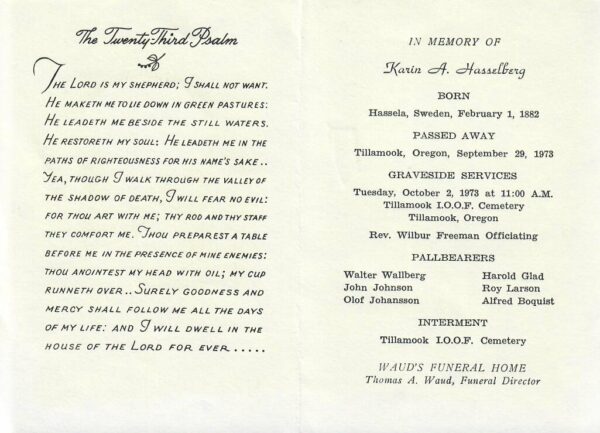 The Twenty-Third Psalm
The Lord is my shepherd; I shall not want.
He maketh me to lie down in green pastures:
He leadeth me beside the still waters.
He restoreth my soul: He leadeth me in the
paths of righteousness for his name's sake..
Yea, though I walk through the valley of
the shadow of death, I will fear no evil:
for thou art with me; thy rod and thy staff
they comfort me. Thou preparest a table
before me in the presence of mine enemies:
thou anointest my head with oil; my cup
runneth over.. Surely goodness and
mercy shall follow me all the days
of my life: and I will dwell in the
house of the Lord for ever.....
IN MEMORY OF
Karin A. Hasselberg
BORN
Hassela, Sweden, February 1, 1882
PASSED AWAY
Tillamook, Oregon, September 29, 1973
GRAVESIDE SERVICES
Tuesday, October 2, 1973 at 11:00 A.M.
Tillamook I.O.O.F. Cemetery
Tillamook, Oregon
Rev. Wilbur Freeman Officiating
PALLBEARERS
Walter Wallberg Harold Glad
John Johnson Roy Larson
Olof Johansson Alfred Boquist
INTERMENT
Tillamook I.O.O.F. Cemetery
WAUD'S FUNERAL HOME
Thomas A. Waud, Funeral Director